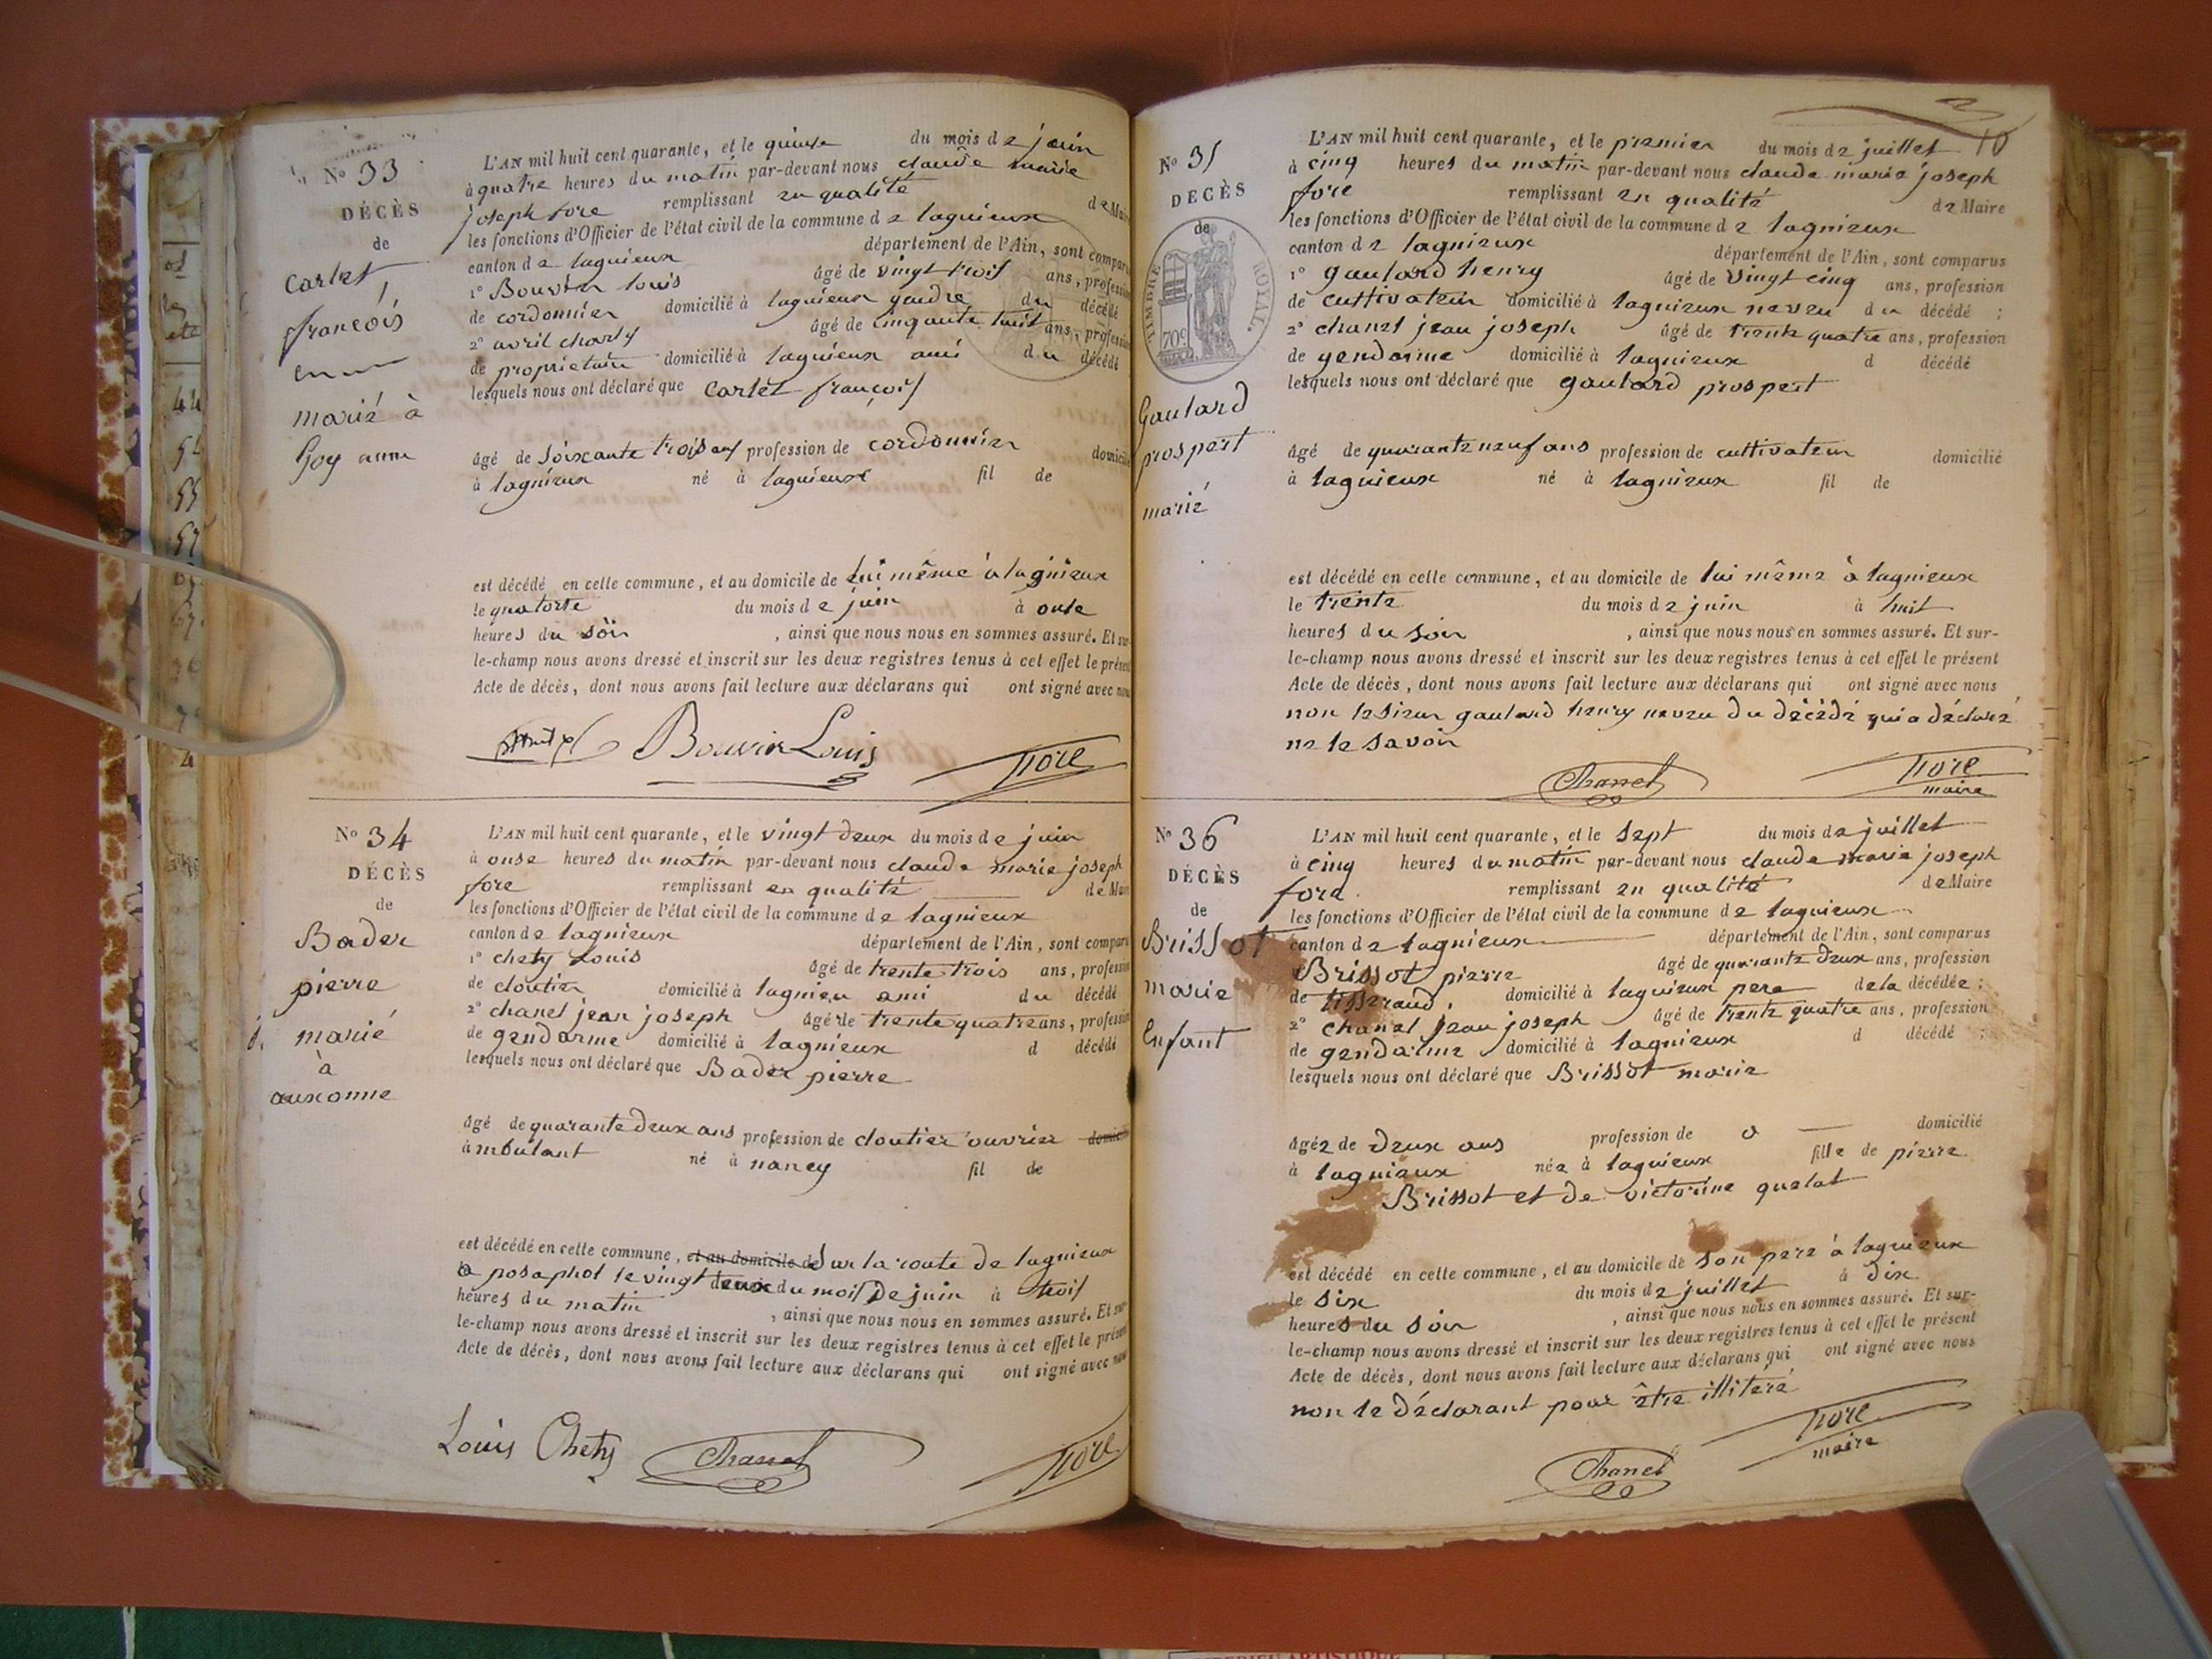 N° 33
DÉCÈS
de
Carlet
françois
marié à
Goy anne
L'AN mil huit cent quarante, et le quinze du mois de juin
à quatre heures du matin par-devant nous claude marie
joseph fore remplissant en qualité de Mai
les fonctions d'Officier de l'état civil de la commune de lagnieux
canton de lagnieux département de l'Ain, sont compar
1° Bouvier louis âgé de vingt trois ans, profession
de cordonnier domicilié à lagnieux gendre du décédé
2° avril charly âgé de cinqante huit ans, profession
de propriétaire domicilié à lagnieux ami du décédé
lesquels nous ont déclaré que Carlet françois
âgé de soixante trois ans profession de cordonnier domicil
à lagnieux né à lagnieux fil de
est décédé en celle commune, et au domicile de lui même à lagnieux
le quatorze du mois de juin à onze
heures du soir , ainsi que nous nous en sommes assuré. Et sur-
le-champ nous avons dressé et inscrit sur les deux registres tenus à cet effet le présent
Acte de décès, dont nous avons fait lecture aux déclarans qui ont signé avec nous
Bouvier Louis fore
N° 34
DÉCÈS
de
Bader
pierre
marié
à
auxonne
L'AN mil huit cent quarante, et le vingt deux du mois de juin
à onze heures du matin par-devant nous claude marie joseph
fore remplissant en qualité de Mai
les fonctions d'Officier de l'état civil de la commune de lagnieux
canton de lagnieux département de l'Ain, sont compar
1° chety Louis âgé de trente trois ans, profession
de cloutier domicilié à lagnieu ami du décédé
2° chanel jean joseph âgé de trente quatre ans, profession
de gendarme domicilié à lagnieux d décédé
lesquels nous ont déclaré que Bader pierre
âgé de quarante deux ans profession de cloutier ouvrier domici
àmbulant né à nancy fil de
est décédé en celle commune, et au domicile de Sur la route de lagnieux
a posaphol le vingt deux du mois De juin à trois
heures du matin , ainsi que nous nous en sommes assuré. Et sur-
le-champ nous avons dressé et inscrit sur les deux registres tenus à cet effet le présent
Acte de décès, dont nous avons fait lecture aux déclarans qui ont signé avec nous
Louis Chety Chanel fore
N° 35
DÉCÈS
de
TIMBRE ROYAL.
70c
Gaulard
prospert
marié
10
L'AN mil huit cent quarante, et le premier du mois de juillet
à cinq heures du matin par-devant nous claude marie joseph
fore remplissant en qualité de Maire
les fonctions d'Officier de l'état civil de la commune de lagnieux
canton de lagnieux département de l'Ain, sont comparus
1° gaulard henry âgé de vingt cinq ans, profession
de cultivateur domicilié à lagnieux neveu du décédé ;
2° chanel jean joseph âgé de trente quatre ans, profession
de gendarme domicilié à lagnieux d décédé
lesquels nous ont déclaré que gaulard prospert
âgé de quarante neuf ans profession de cultivateur domicilié
à lagnieux né à lagnieux fil de
est décédé en celle commune, et au domicile de lui même à lagnieux
le trente du mois de juin à huit
heures du soir , ainsi que nous nous en sommes assuré. Et sur-
le-champ nous avons dressé et inscrit sur les deux registres tenus à cet effet le présent
Acte de décès, dont nous avons fait lecture aux déclarans qui ont signé avec nous
non le sieur gaulard henry neveu du décédé qui a déclaré
ne le savoir
Chanel fore
maire
N° 36
DÉCÈS
de
Brissot
marie
Enfant
L'AN mil huit cent quarante, et le sept du mois de juillet
à cinq heures du matin par-devant nous claude marie joseph
fore remplissant en qualité de Maire
les fonctions d'Officier de l'état civil de la commune de lagnieux
canton de lagnieux département de l'Ain, sont comparus
Brissot pierre âgé de quarante deux ans, profession
de tisserand. domicilié à lagnieux pere de la décédée ;
2° chanel jean joseph âgé de trente quatre ans, profession
de gendarme domicilié à lagnieux d décédé ;
lesquels nous ont déclaré que Brissot marie
âgée de deux ans profession de o domicilié
à lagnieux née à lagnieux fille de pierre
Brissot et de victorine quelat
est décédé en celle commune, et au domicile de son pere à lagnieux
le six du mois de juillet à dix
heures du soir , ainsi que nous nous en sommes assuré. Et sur-
le-champ nous avons dressé et inscrit sur les deux registres tenus à cet effet le présent
Acte de décès, dont nous avons fait lecture aux déclarans qui ont signé avec nous
non le déclarant pour être illiteré
Chanel fore
maire